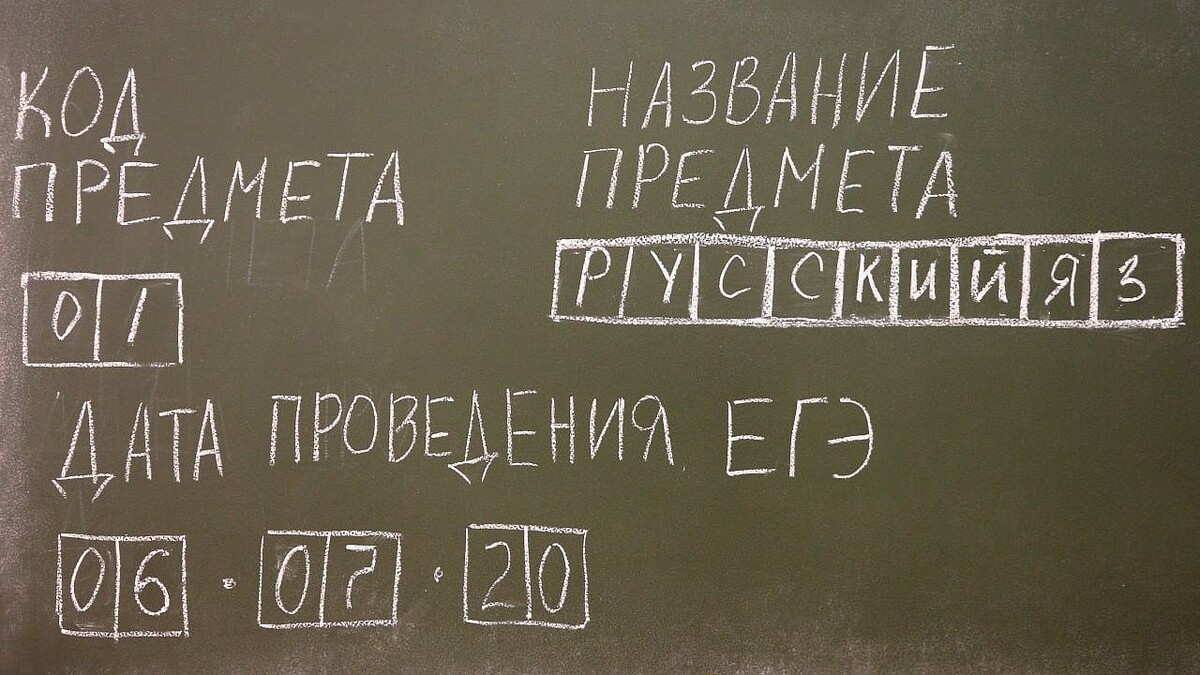 КОД
ПРЕДМЕТА
01
НАЗВАНИЕ
ПРЕДМЕТА
РУССКИЙ ЯЗ
ДАТА ПРОВЕДЕНИЯ ЕГЭ
06.07.20